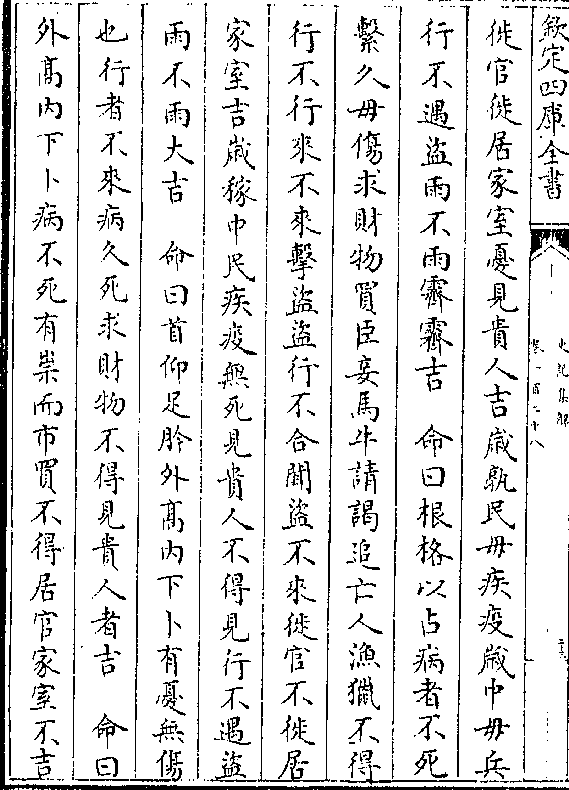 欽定四庫全書
史記集解
卷一百二十八
徙官徙居家室憂見貴人吉歳孰民毋疾疫歳中毋兵
行不遇盜雨不雨霽霽吉　命曰根格以占病者不死
繫久毋傷求財物買臣妾馬牛請謁追亡人漁獵不得
行不行來不來擊盜盜行不合聞盜不來徙官不徙居
家室吉歳稼中民疾疫無死見貴人不得見行不遇盜
雨不雨大吉　命曰首仰足肣外髙内下卜有憂無傷
也行者不來病久死求財物不得見貴人者吉　命曰
外髙内下卜病不死有祟而市買不得居官家室不吉